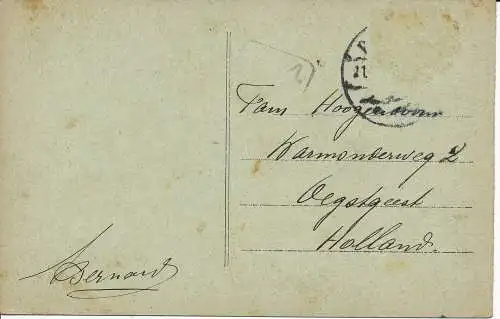 Fam Hoogenboom
Warmonderweg 2
Oegstgeest
Holland.
Bernard
21.